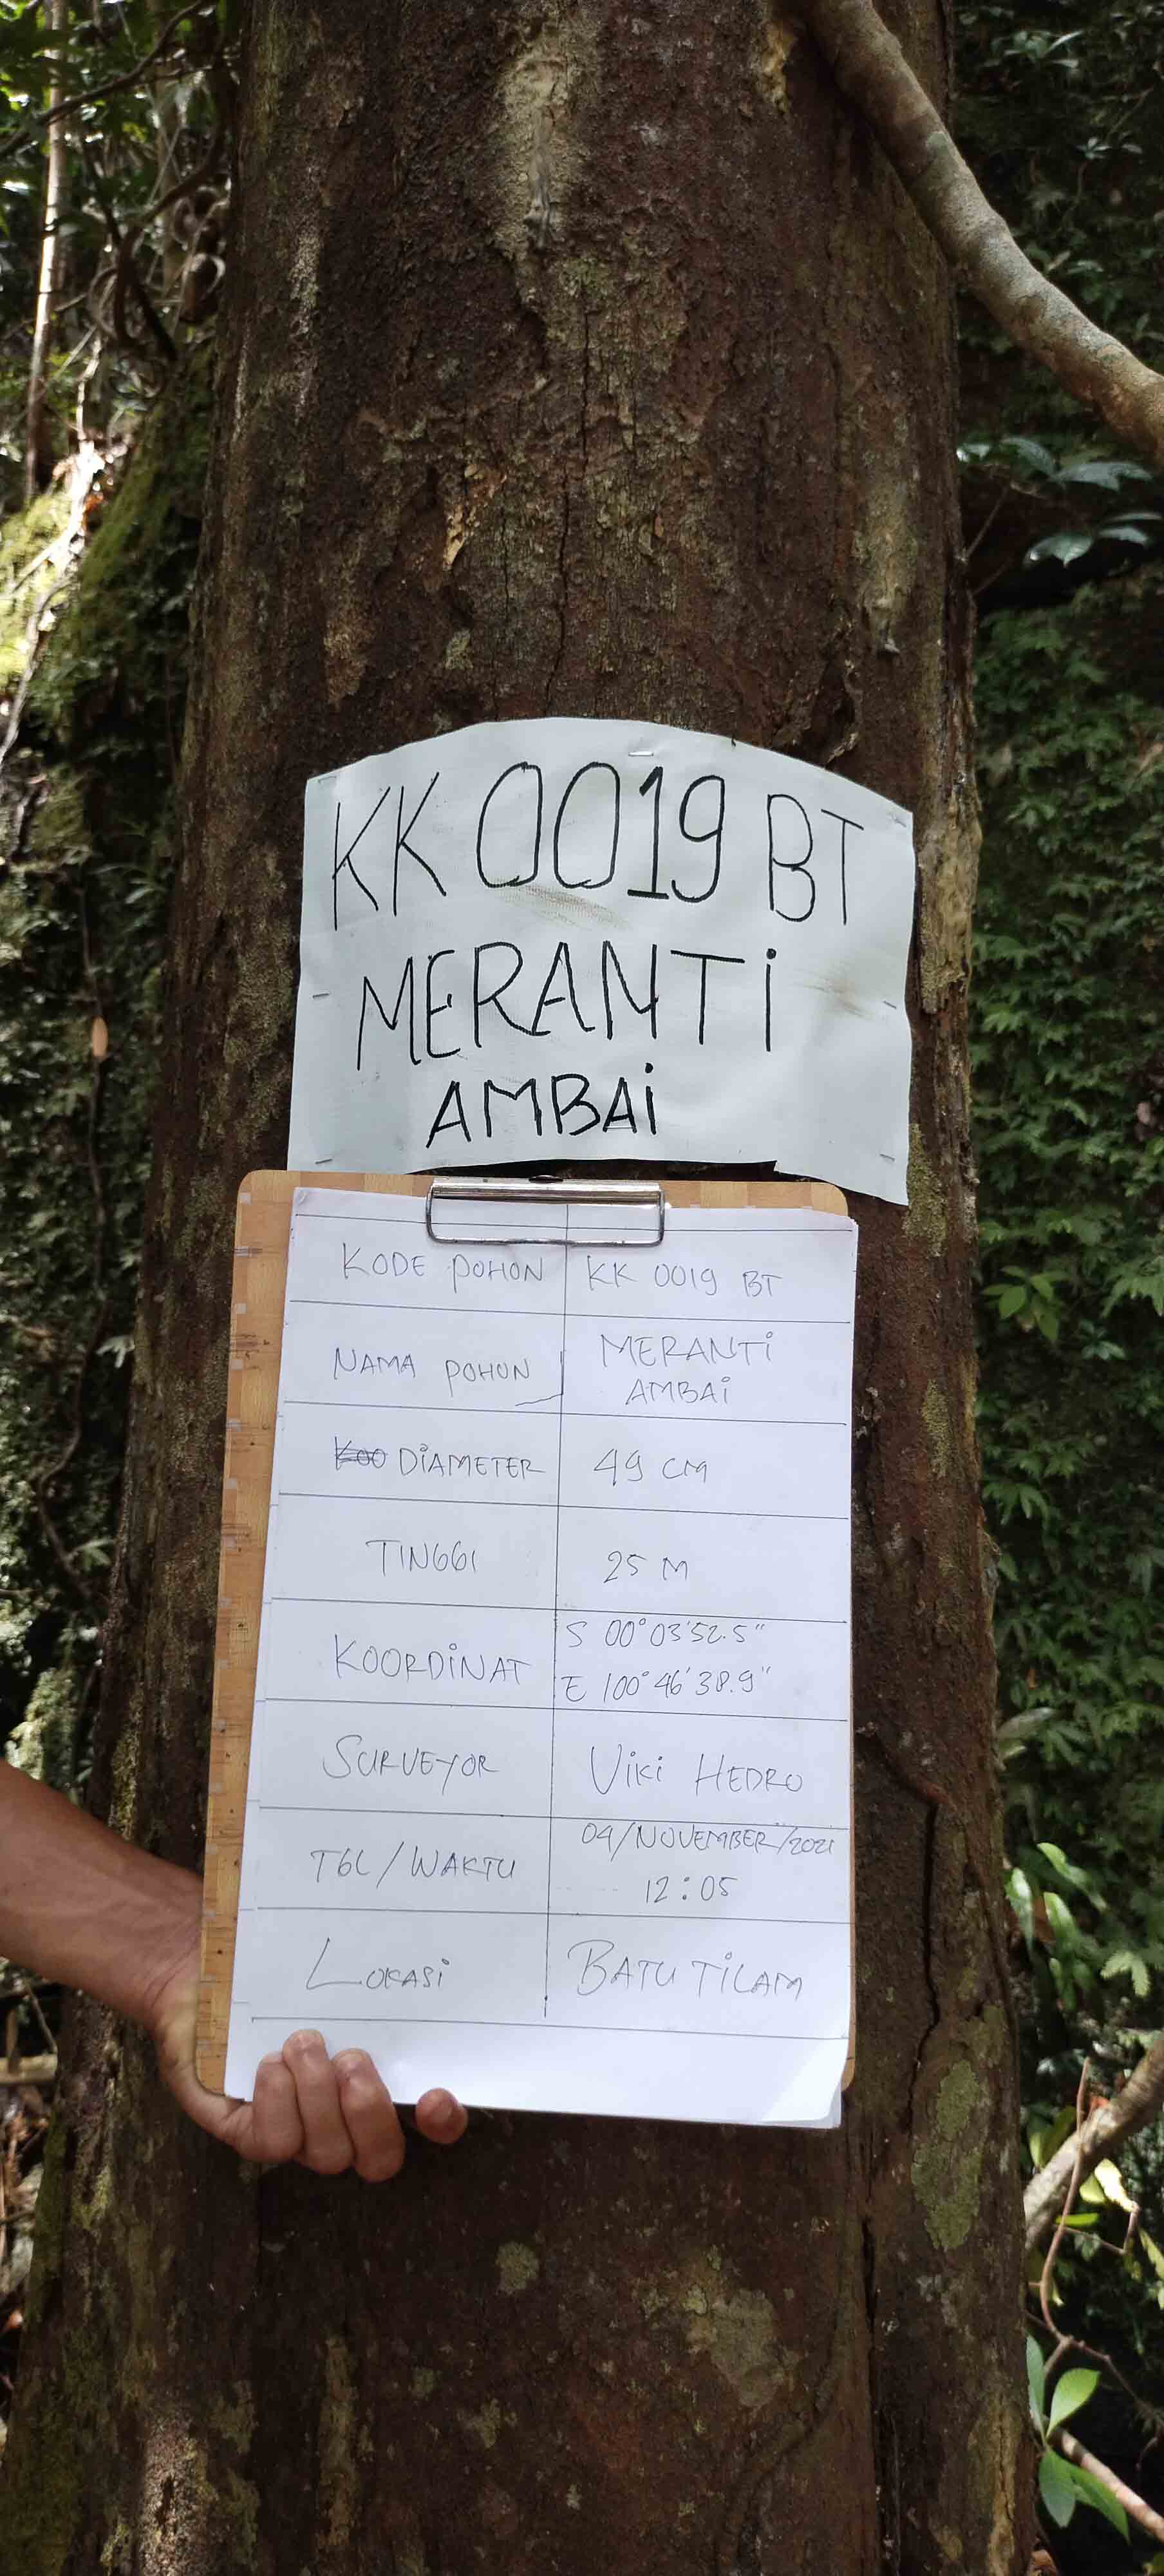 KK 0019 BT
MERANTi
AMBAi
KODE POHON KK 0019 BT
NAMA POHON MERANTi
AMBAi
DiAMETER 49 CM
TINGGI 25 M
KOORDiNAT S 00°03'52.5"
E 100°46'38.9"
SURVEYOR ViKi HEDRO
TGL/WAKTU 04/NOVEMBER/2021
12:05
LOKASi BATU TiLAM